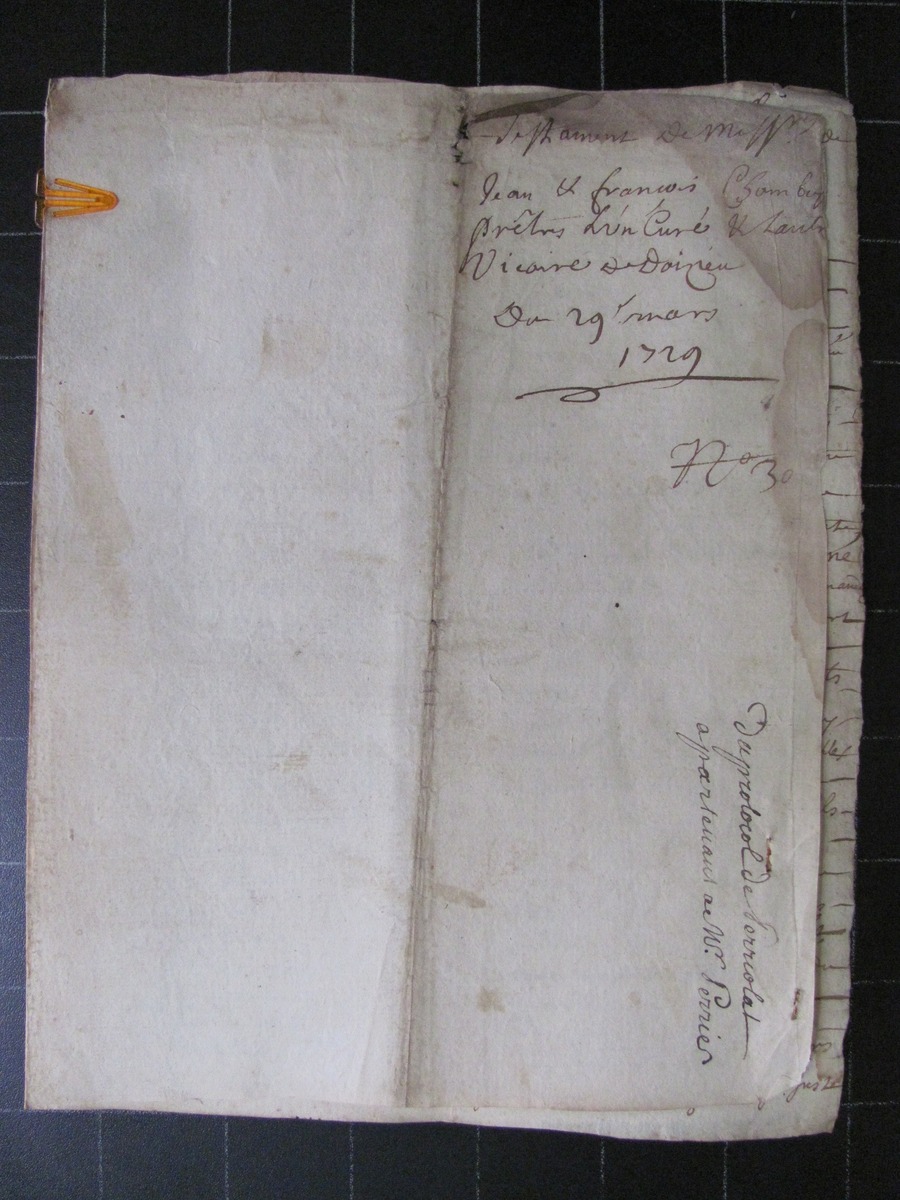 Testament de Messrs
Jean & françois Chambey
prêtres L'un Curé & Lautr
Vicaire de Doizieu
Du 29e mars
1729
No 30
Du protocol de Perriolat
apartenant a Mr. Perrier